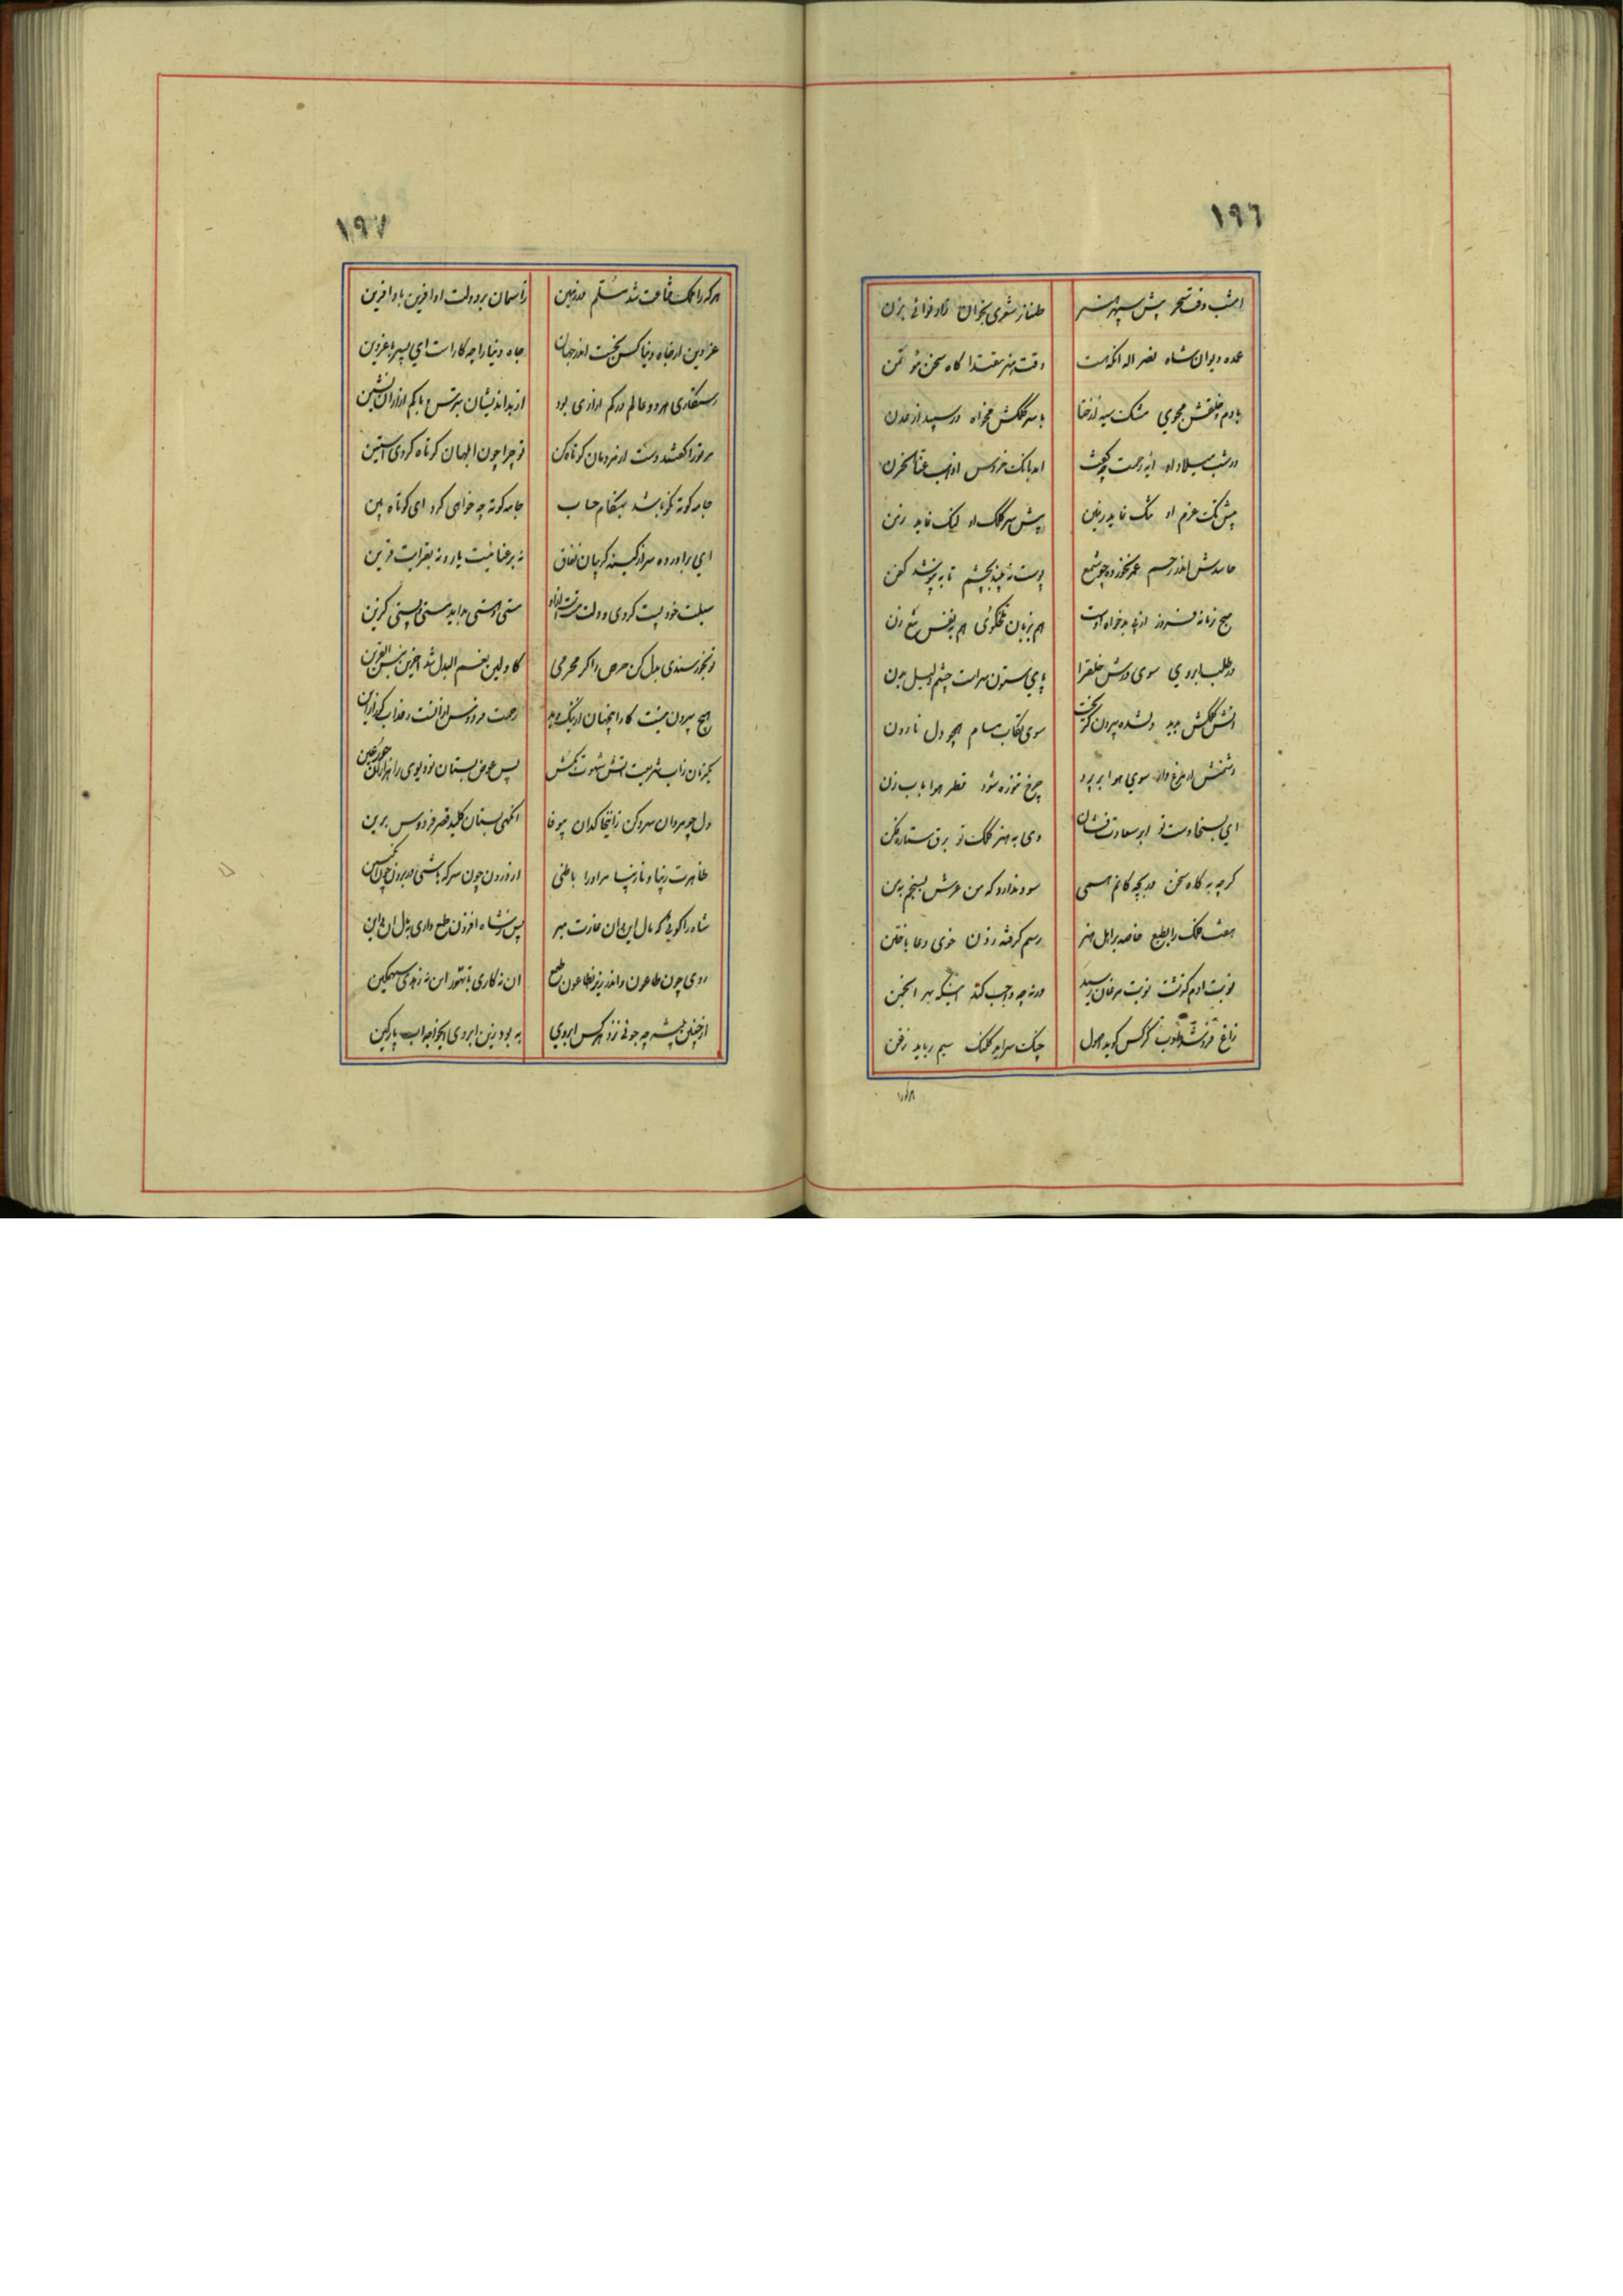 ١٩٦
امشب وقت سحر پیش سپهر هنر طناز شعری بخوان راوفوائی بزن
عمده دیوان شاه نصر اله انکه هست وقت هنر مقتدا کاه سخن مؤتمن
با دم خلقش مجوی مشک سیه از ختا با سر کلکش مخواه در سپید از عدن
در شب میلاد او آیه رحمت چه گفت
پیش تک عزم او سک نماید زمین پیش سر کلک او لیک نماید زمن
حاسدش اندر رحم غم بخورده چو شمع پوست نه بیند بچشم تا نه بپوشد کفن
صبح زمانه فروز از پی بدخواه اوست هم بزبان شکوی هم به نفس تیغ زن
در طلب ابروی سوی درش خلق را پای ستون سراست چشم دلیل بدن
اتش کلکش بدید دلشده بیرون کریخت سوی نقاب مسام همچو دل نارون
دشمنش ار مرغ وار سوی هوا بر پرد چرخ تنوزه شود قطر هوا بابزن
ای بسخا دست تو ابر سعادت فشان وی به هنر کلک تو برق ستاره فکن
کرچه به کاه سخن در بچه کانم همی سود ندارد که من عرش بسنجم به من
هفت فلک را بطبع خاصه بر اهل هنر رسم کرفته زدن خوی دعا باختن
نوبت ادم کذشت نوبت مرغان رسید ورنه چه واجب کند اینکه بهر انجمن
زاغ فروشد طرب کرکس کوید اصول چنک سراید کلنک سیم رباید زغن
هرکه را
١٩٧
هرکه را ملک قناعت شد مسلم بر زمین زاسمان بر دولت او آفرین باد آفرین
عز و دین از جاه دنیا کس نجست اندر جهان جاه دنیا را چه کار است ای پسر با عز دین
رستکاری هر دو عالم در کم ازاری بود از بد اندیشان بترس و با کم ازاران نشین
مر ترا گفتند دست از مردمان کوتاه کن تو چرا چون ابلهان کوتاه کردی آستین
جامه کوته نکو باشد بهنکام حساب جامه کوته چه خواهی کرد ای کوتاه بین
ای براورده سر از کینه کریبان نفاق نه بر عنائیت یار و نه بقرائیت قرین
سبلت خود پست کردی دولت مستی و هستی بداید مستی و پستی کزین
تو بخورسندی بدل کن حرص را کر محرمی کاولین نعم البدل شد آخرین بئس القرین
هیچ بیرون نیست کار اینچنان از نیک و بد رحمت فردوس از آنست و عذاب کور از آن
یکزمان زاب شریعت اتش شهوت بکش پس عوض بستان تو دیوی را هزاران حور عین
دل چو مردان سرد کن زاینخاکدان بیوفا انکهی بستان کلید قصر فردوس برین
ظاهرت زیبا و نازیبا مر او را باطنی از درون چون سرکه باشی وز برون چون انکبین
شاه را کوئی که مال این و ان غارت مبر پس ز شاه افزون طمع داری بمال ان و این
روی چون طاعون و اندر زیر طاعون طمع ان نه کاری با تهور این نه زهدی سهمکین
از چنین پیشه چه جوئی نزد هر کس ابروی به بود زین ابروی ایخواجه اب پارکین